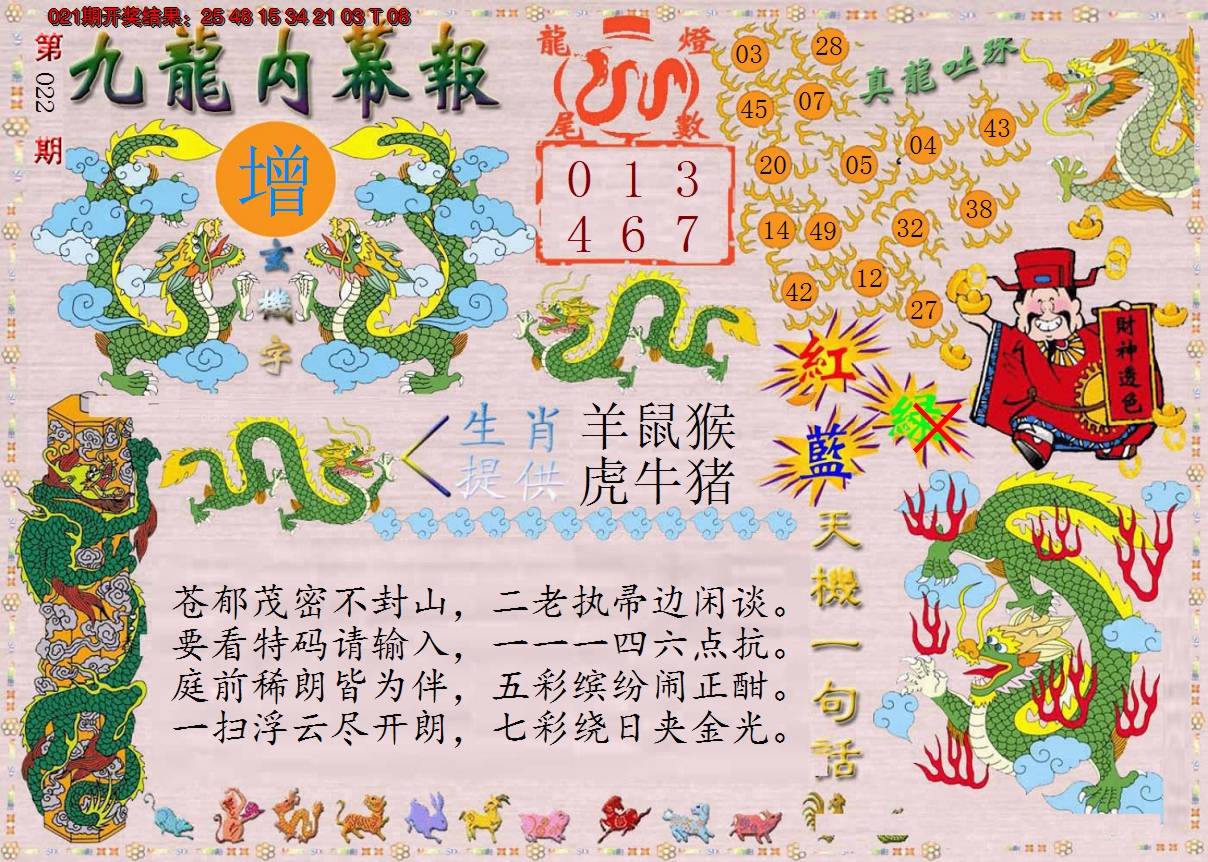 021期开奖结果：25 48 15 34 21 03 T 08
第022期
九龍内幕報
增
玄機字
龍燈尾數
0 1 3
4 6 7
真龍吐珠
03 28
45 07
20 05 04 43
14 49 32 38
42 12 27
財神透色
紅
綠
藍
生肖 羊鼠猴
提供 虎牛猪
天機一句話
苍郁茂密不封山，二老执帚边闲谈。
要看特码请输入，一一一四六点抗。
庭前稀朗皆为伴，五彩缤纷闹正酣。
一扫浮云尽开朗，七彩绕日夹金光。